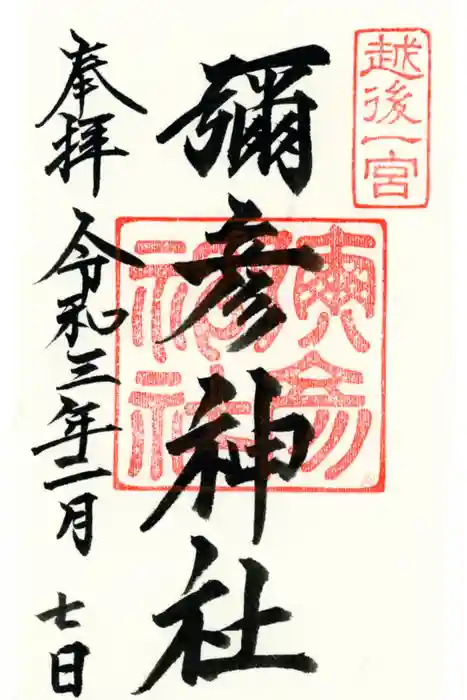 越後一宮
彌彦神社
奉拝 令和三年二月七日